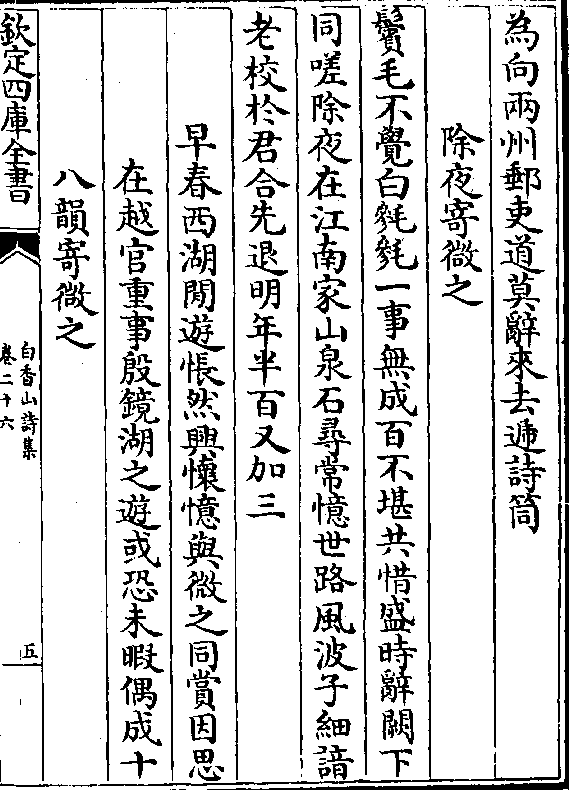 為向兩州郵吏道莫辭來去遞詩筒
除夜寄微之
鬢毛不覺白毿毿一事無成百不堪共惜盛時辭闕下
同嗟除夜在江南家山泉石尋常憶世路風波子細諳
老校於君合先退明年半百又加三
早春西湖閒遊悵然興懷憶與微之同賞因思
在越官重事殷鏡湖之遊或恐未暇偶成十
八韻寄微之
欽定四庫全書
白香山詩集
卷二十六
五